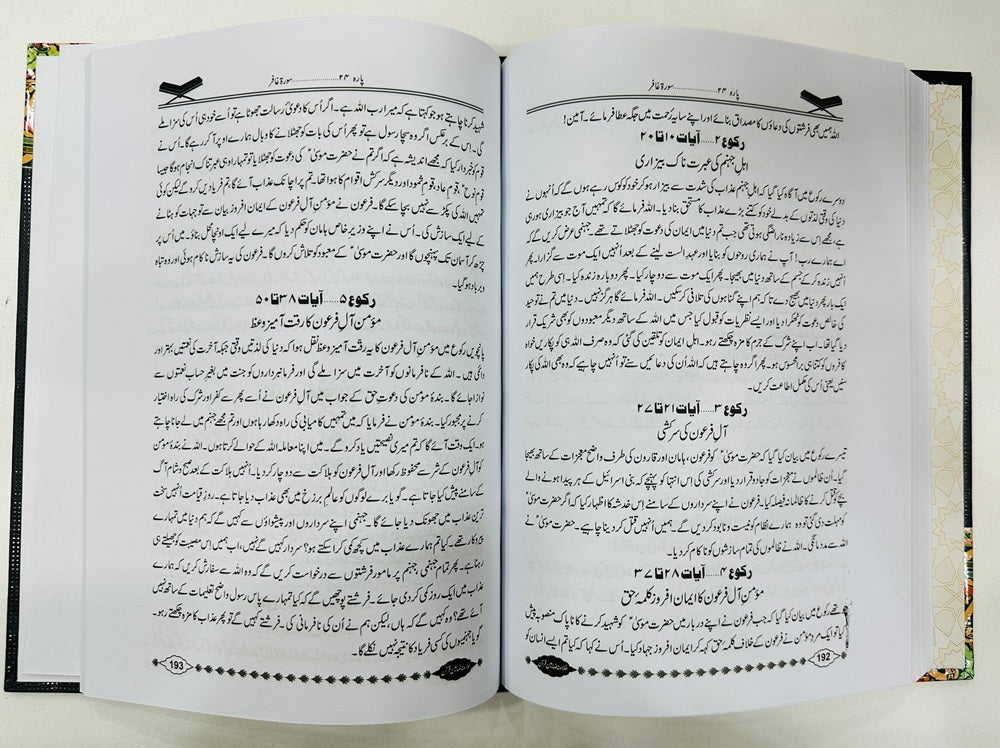 پارہ ۲۴.....................سورۃ غافر
اللہ ہمیں بھی فرشتوں کی دعاؤں کا مصداق بنائے اور اپنے سایۂ رحمت میں جگہ عطا فرمائے۔ آمین!
رکوع ۲.....آیات ۱۰ تا ۲۰
اہلِ جہنم کی عبرت ناک بیزاری
دوسرے رکوع میں آگاہ کیا گیا کہ اہلِ جہنم عذاب کی شدت سے بیزار ہو کر خود کو کوس رہے ہوں گے کہ اُنہوں نے
دنیا کی وقتی لذتوں کے بدلے خود کو کتنے بڑے عذاب کا مستحق بنا دیا۔ اللہ فرمائے گا کہ تمہیں آج جو بیزاری ہو رہی
ہے، مجھے اس سے زیادہ ناراضگی ہوتی تھی جب تم دنیا میں ایمان کی دعوت کو جھٹلاتے تھے۔ جہنمی عرض کریں گے کہ
اے ہمارے رب! آپ نے ہماری روحوں کو بنایا اور عہدِ الست لینے کے بعد اُنہیں ایک موت سے گزارا۔ پھر
اُنہیں زندہ کر کے جسم کے ساتھ دنیا میں بھیجا۔ پھر ایک موت سے دوچار کیا۔ پھر دوبارہ زندہ کیا۔ اسی طرح ہمیں
ایک بار پھر دنیا میں بھیج دے تا کہ ہم اپنے گناہوں کی تلافی کر سکیں۔ اللہ فرمائے گا ہرگز نہیں۔ دنیا میں تم نے توحید
کی خالص دعوت کو ٹھکرا دیا اور ایسے نظریات کو قبول کیا جس میں اللہ کے ساتھ دیگر معبودوں کو بھی شریک قرار
دیا گیا تھا۔ اب اپنے شرک کے جرم کا مزہ چکھتے رہو۔ اہلِ ایمان کو تلقین کی گئی کہ وہ صرف اللہ ہی کو پکاریں خواہ
کافروں کو کتنا ہی برا محسوس ہو۔ پھر اگر وہ چاہتے ہیں کہ اللہ اُن کی دعائیں سنے تو اُنہیں چاہیے کہ وہ بھی اللہ کی
سنیں یعنی اُس کی مکمل اطاعت کریں۔
رکوع ۳.....آیات ۲۱ تا ۲۷
آلِ فرعون کی سرکشی
تیسرے رکوع میں بیان کیا گیا کہ حضرت موسیٰؑ کو فرعون، ہامان اور قارون کی طرف واضح معجزات کے ساتھ بھیجا
گیا۔ اُن ظالموں نے معجزات کو جادو قرار دیا اور سرکشی کی اس انتہا کو پہنچے کہ بنی اسرائیل کے ہر پیدا ہونے والے
بچے کو قتل کرنے کا ظالمانہ فیصلہ کیا۔ فرعون نے اپنے سرداروں کے سامنے اِس خدشہ کا اظہار کیا کہ اگر حضرت موسیٰؑ
کو مہلت دی گئی تو وہ ہمارے نظام کو نیست و نابود کر دیں گے۔ ہمیں اُنہیں قتل کر دینا چاہیے۔ حضرت موسیٰؑ نے
اللہ سے مدد مانگی۔ اللہ نے ظالموں کی تمام سازشوں کو ناکام کر دیا۔
رکوع ۴.....آیات ۲۸ تا ۳۷
مؤمنِ آلِ فرعون کا ایمان افروز کلمۂ حق
چوتھے رکوع میں بیان کیا گیا کہ جب فرعون نے اپنے دربار میں حضرت موسیٰؑ کو شہید کرنے کا ناپاک منصوبہ پیش
کیا تو ایک مردِ مؤمن نے فرعون کے خلاف کلمۂ حق کہہ کر ایمان افروز جہاد کیا۔ اُس نے کہا کہ کیا تم ایسے انسان کو
192
پارہ ۲۴.....................سورۃ غافر
شہید کرنا چاہتے ہو جو کہتا ہے کہ میرا رب اللہ ہے۔ اگر اُس کا دعویٰٔ رسالت جھوٹا ہے تو اُسے خود ہی اُس کی سزا ملے
گی۔ اس کے برعکس اگر وہ سچا رسول ہے تو پھر اُس کی بات کو جھٹلانے کا وبال ہمارے اوپر آ کر رہے گا۔ اُس نے
قوم کو خبردار کیا کہ مجھے اندیشہ ہے کہ اگر تم نے حضرت موسیٰؑ کی دعوت کو جھٹلایا تو تمہارا وہی عبرتناک انجام ہو گا جیسا
قومِ نوحؑ، قومِ عاد، قومِ ثمود اور دیگر سرکش اقوام کا ہوا تھا۔ تم پر اچانک عذاب آئے گا، تم فریادیں کرو گے لیکن کوئی
تمہیں اللہ کی پکڑ سے نہیں بچا سکے گا۔ فرعون نے مؤمنِ آلِ فرعون کے ایمان افروز بیان سے توجہات کو ہٹانے
کے لیے ایک سازش کی۔ اُس نے اپنے وزیرِ خاص ہامان کو حکم دیا کہ میرے لیے ایک اونچا محل بناؤ۔ میں اُس پر
چڑھ کر آسمان تک پہنچوں گا اور حضرت موسیٰؑ کے معبود کو تلاش کروں گا۔ فرعون کی یہ سازش ناکام ہوئی اور وہ تباہ
و برباد ہو گیا۔
رکوع ۵.....آیات ۳۸ تا ۵۰
مؤمنِ آلِ فرعون کا رقت آمیز وعظ
پانچویں رکوع میں مؤمنِ آلِ فرعون کا یہ رقت آمیز وعظ نقل ہوا کہ دنیا کی لذتیں وقتی جبکہ آخرت کی نعمتیں بہتر اور
دائمی ہیں۔ اللہ کے نافرمانوں کو آخرت میں سزا ملے گی اور فرمانبرداروں کو جنت میں بغیر حساب نعمتوں سے
نوازا جائے گا۔ بندۂ مؤمن کی دعوتِ حق کے جواب میں آلِ فرعون نے اُسے پھر سے کفر اور شرک کی راہ اختیار
کرنے پر مجبور کیا۔ بندۂ مؤمن نے فرمایا کہ میں تمہیں کامیابی کی راہ دکھا رہا ہوں اور تم مجھے جہنم میں لے جانا چاہتے
ہو۔ ایک وقت آئے گا کہ تم میری نصیحتیں یاد کرو گے۔ میں اپنا معاملہ اللہ کے حوالے کرتا ہوں۔ اللہ نے بندۂ مؤمن
کو آلِ فرعون کے شر سے محفوظ رکھا اور آلِ فرعون کو ہلاکت سے دوچار کر دیا۔ اُنہیں ہلاکت کے بعد صبح و شام آگ
کے سامنے پیش کیا جاتا ہے۔ گویا برے لوگوں کو عالمِ برزخ میں بھی عذاب دیا جاتا ہے۔ روزِ قیامت اُنہیں سخت
ترین عذاب میں جھونک دیا جائے گا۔ جہنمی اپنے سرداروں اور پیشواؤں سے کہیں گے کہ ہم دنیا میں تمہارے
پیروکار تھے۔ کیا تم ہمارے عذاب میں کچھ کمی کرا سکتے ہو؟ سردار کہیں گے نہیں، اب ہمیں اس مصیبت کو جھیلتے ہی
رہنا ہے۔ پھر تمام جہنمی، جہنم پر مامور فرشتوں سے درخواست کریں گے کہ وہ اللہ سے سفارش کریں کہ ہمارے
عذاب میں ایک روز کی کمی کر دی جائے۔ فرشتے پوچھیں گے کہ کیا تمہارے پاس رسول واضح تعلیمات کے ساتھ نہیں
آئے تھے؟ وہ کہیں گے کہ ہاں، لیکن ہم نے اُن کی نافرمانی کی۔ فرشتے کہیں گے تو پھر عذاب کا مزہ چکھتے رہو۔
گویا جہنمیوں کی کسی فریاد کا نتیجہ نہیں نکلے گا۔
193